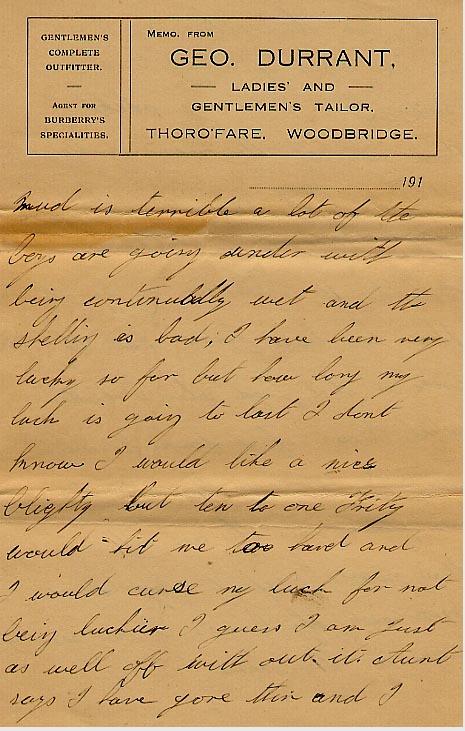 GENTLEMEN'S
COMPLETE
OUTFITTER.
AGENT FOR
BURBERRY'S
SPECIALITIES.
MEMO. FROM
GEO. DURRANT,
LADIES' AND
GENTLEMEN'S TAILOR,
THORO'FARE, WOODBRIDGE.
191
mud is terrible a lot of the
boys are going under with
being continually wet and the
shelling is bad, I have been very
lucky so far but how long my
luck is going to last I dont
know I would like a nice
blighty but ten to one Fritz
would hit me too hard and
I would curse my luck for not
being luckier I guess I am just
as well off with out it. Aunt
says I have gone thin and I